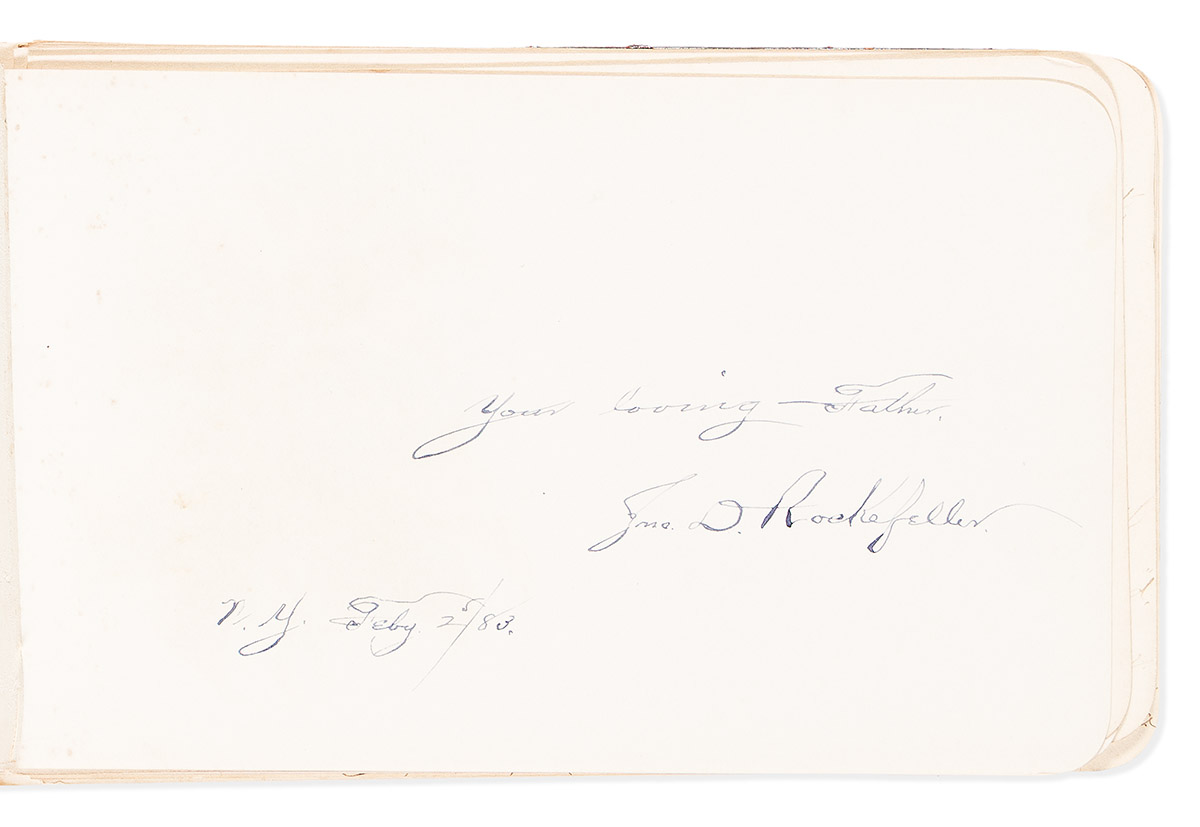 Your loving Father.
Jno. D. Rockefeller.
N. Y. Feby. 2d/83.